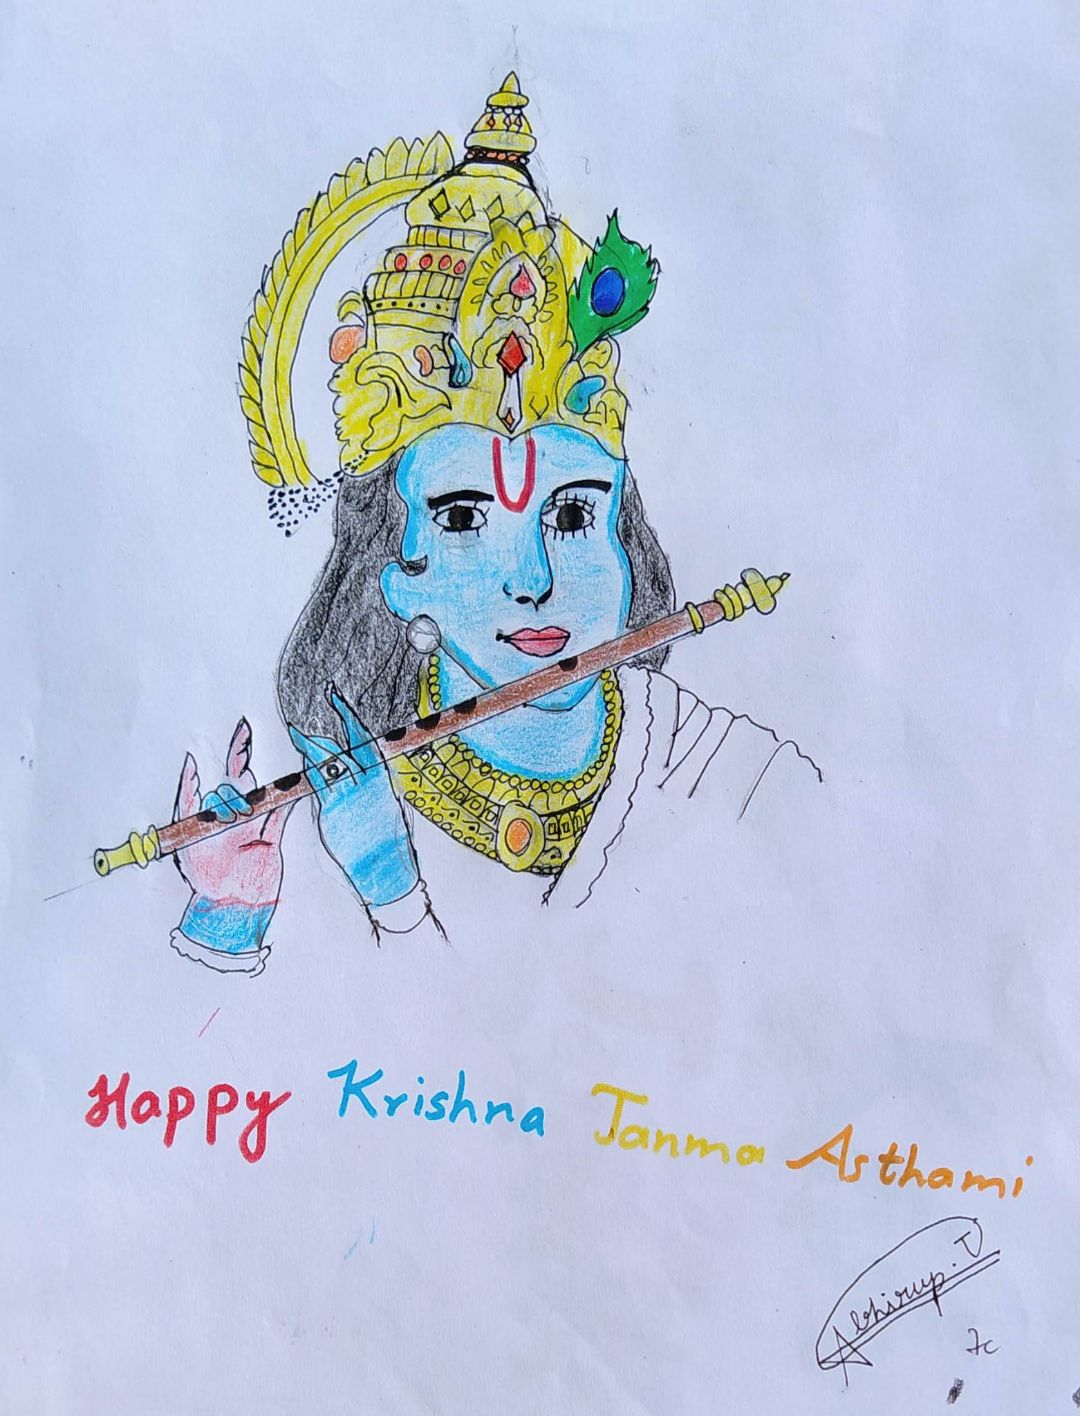 Happy Krishna Janma Asthami
Abhirup. T
7c